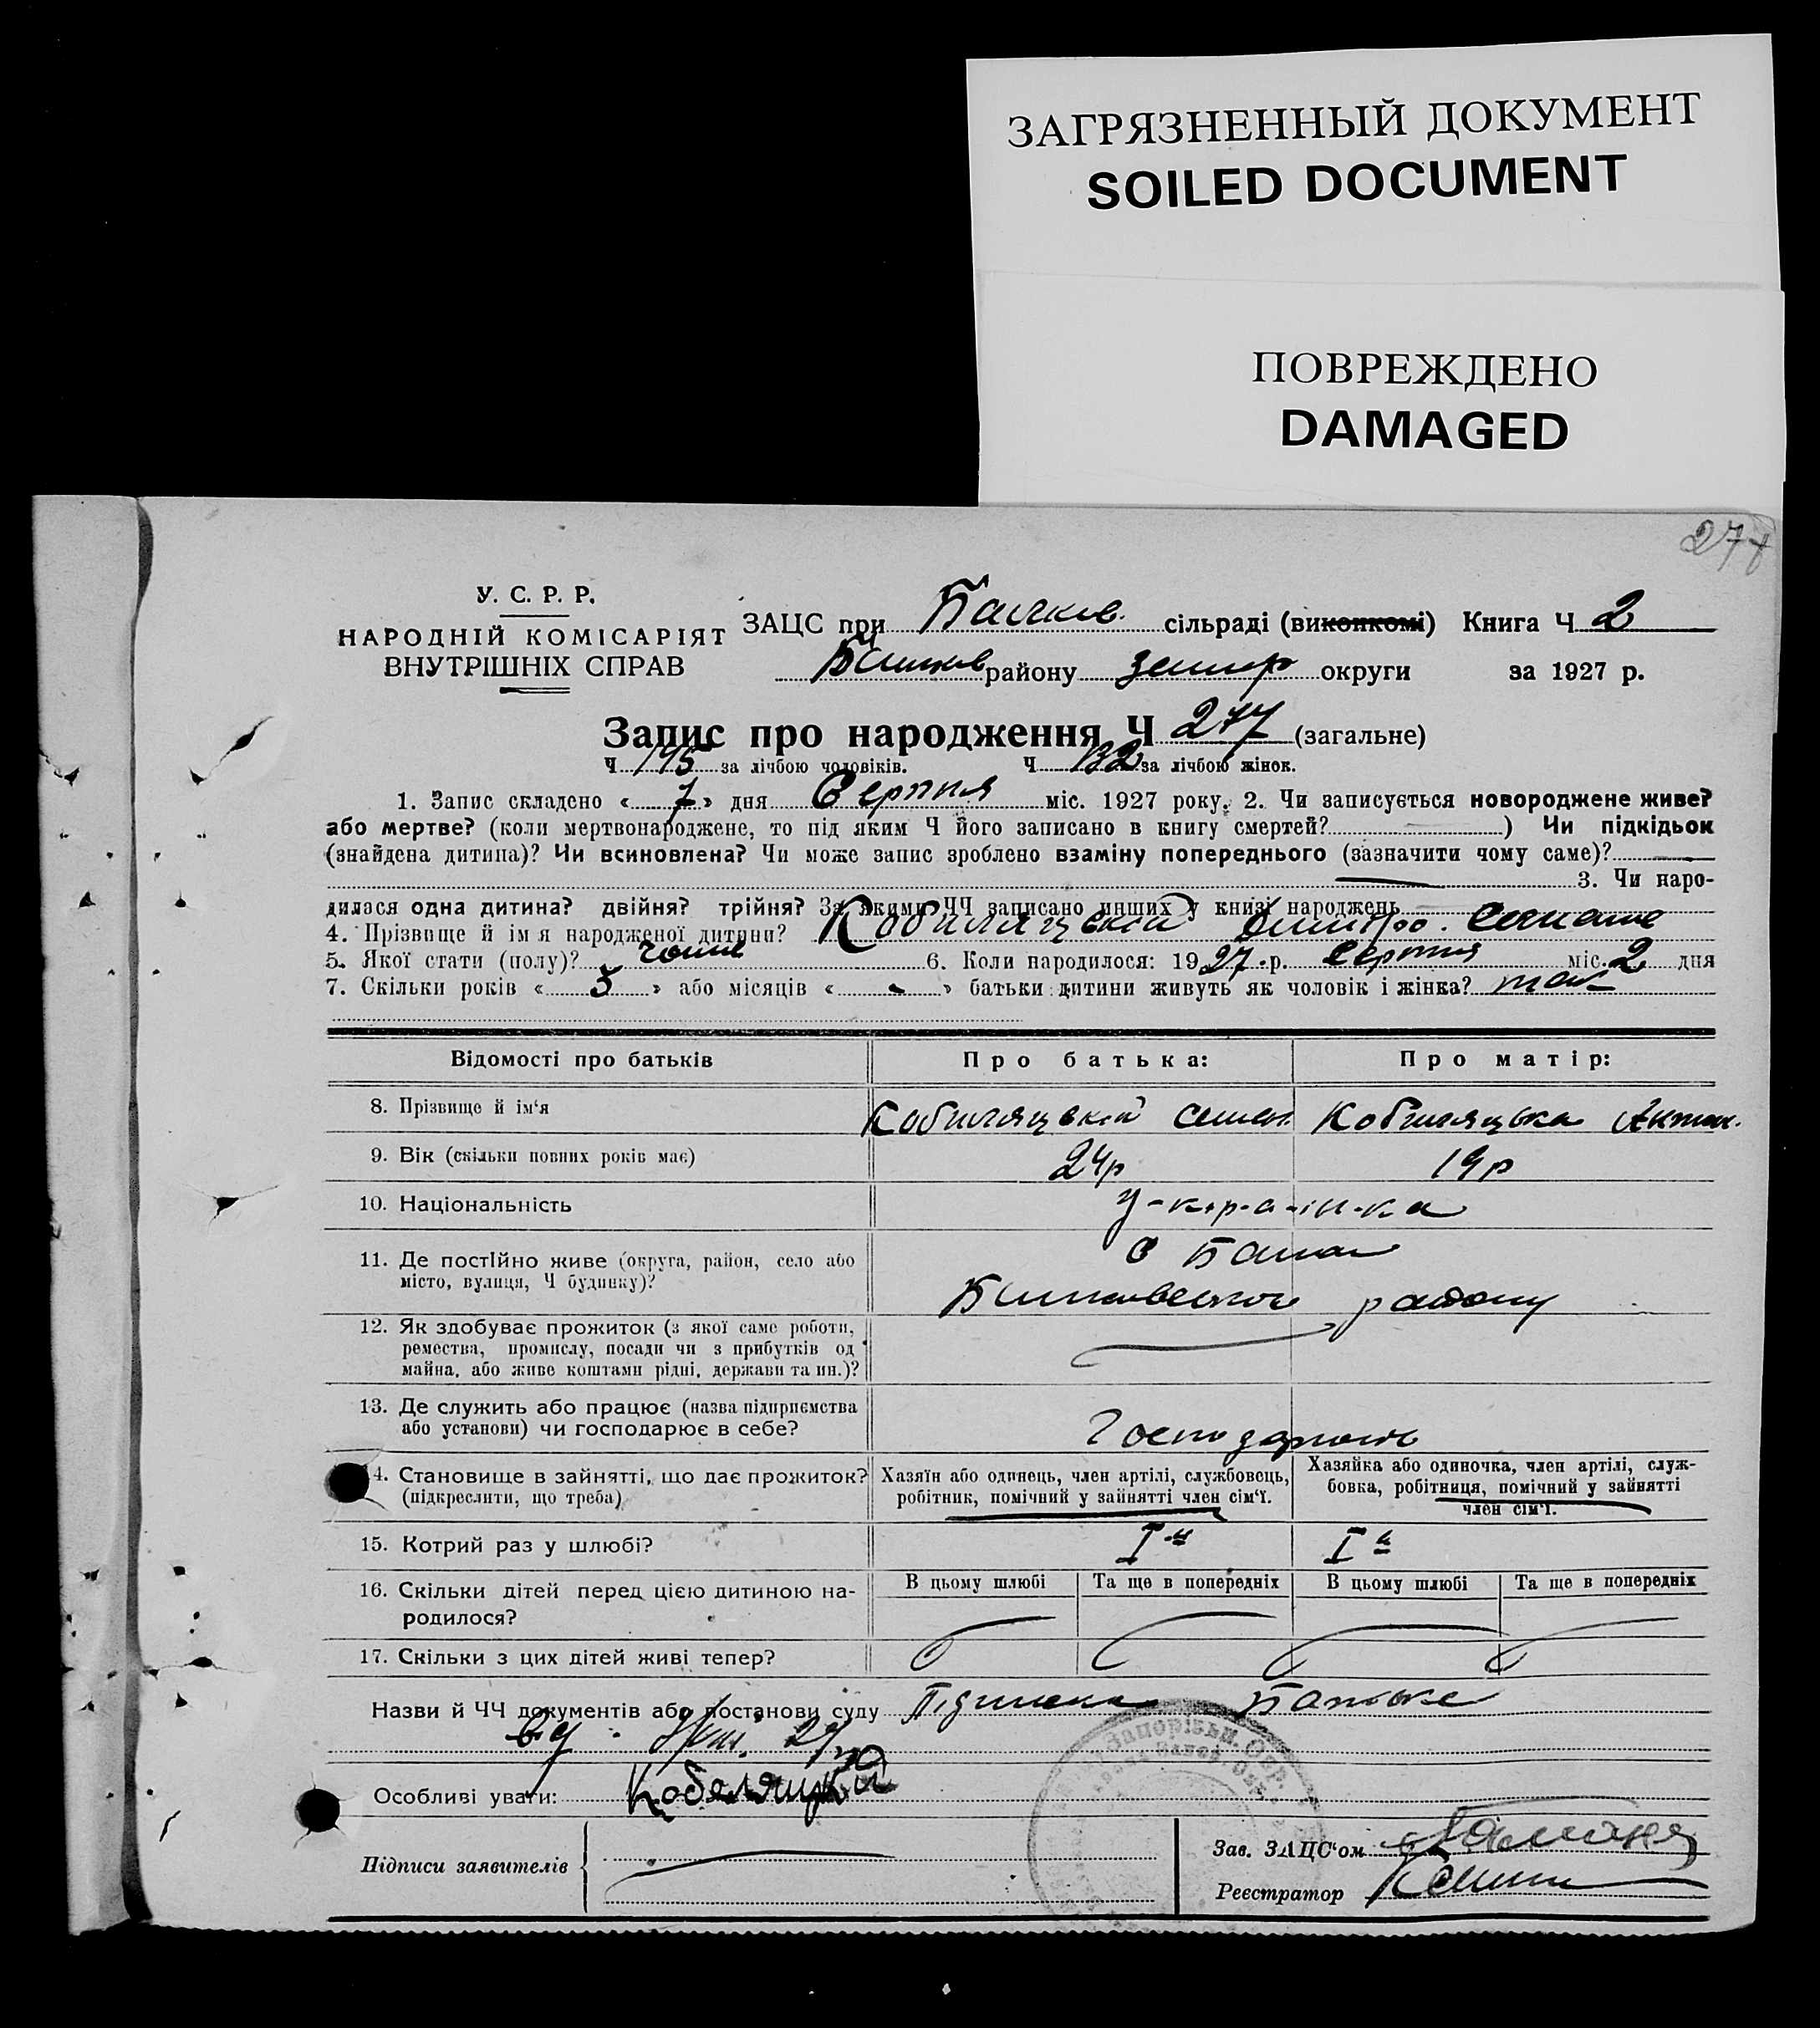 ЗАГРЯЗНЕННЫЙ ДОКУМЕНТ
SOILED DOCUMENT
ПОВРЕЖДЕНО
DAMAGED
277
У. С. Р. Р.
НАРОДНІЙ КОМІСАРІЯТ
ВНУТРІШНІХ СПРАВ
ЗАЦС при сільраді (виконкомі) Книга Ч 2
району округи за 1927 р.
Запис про народження Ч 277 (загальне)
Ч 145 за лічбою чоловіків. Ч 132 за лічбою жінок.
1. Запис складено « 7 » дня Серпня міс. 1927 року. 2. Чи записується новороджене живе?
або мертве? (коли мертвонароджене, то під яким Ч його записано в книгу смертей?) Чи підкідьок
(знайдена дитина)? Чи всиновлена? Чи може запис зроблено взаміну попереднього (зазначити чому саме)?
3. Чи наро-
дилася одна дитина? двійня? трійня? За якими ЧЧ записано инших у книзі народжень
4. Прізвище й ім я народженої дитини? Кобиляцвкій Дмитро
5. Якої стати (полу)? 6. Коли народилося: 1927 р. Серпня міс. 2 дня
7. Скільки років « 3 » або місяців « - » батьки дитини живуть як чоловік і жінка? так
Відомості про батьків Про батька: Про матір:
8. Прізвище й ім'я Кобиляцвкій Семен Кобиляцька
9. Вік (скільки повних років має) 24р 19р
10. Національність у-к-р-а-ін-ка
11. Де постійно живе (округа, район, село або
місто, вулиця, Ч будинку)?
району
12. Як здобуває прожиток (з якої саме роботи,
ремества, промислу, посади чи з прибутків од
майна, або живе коштами рідні, держави та ин.)?
13. Де служить або працює (назва підприємства
або установи) чи господарює в себе?
14. Становище в зайнятті, що дає прожиток?
(підкреслити, що треба)
Хазяїн або одинець, член артілі, службовець,
робітник, помічний у зайнятті член сім'ї.
Хазяйка або одиночка, член артілі, служ-
бовка, робітниця, помічний у зайнятті
член сім'ї.
15. Котрий раз у шлюбі? І-й І-й
16. Скільки дітей перед цією дитиною на-
родилося?
В цьому шлюбі Та ще в попередніх В цьому шлюбі Та ще в попередніх
17. Скільки з цих дітей живі тепер?
Назви й ЧЧ документів або постанови суду
Особливі уваги: Кобеляцкій
Підписи заявителів
Зав. ЗАЦС'ом
Реєстратор